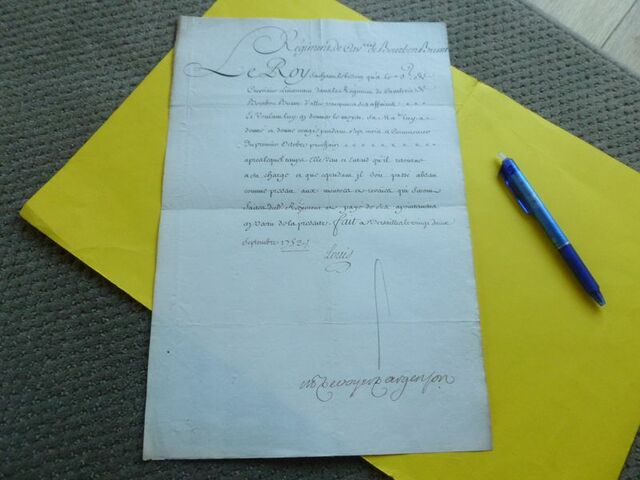 Regiment de Cav.rie de Bourbon Busset
Le Roy Sachant le besoin qu'a le S.r
Lieutenant dans le Regiment de Cavalerie de
Bourbon Busset d'aller vacquer a ses affaires
Et Voulant luy en donner le moyen. Sa M.té luy
donne congé pendant sept mois a Commencer
Du premier Octobre prochain
apres lequel temps Elle Veut et Entend qu'il retourne
a sa charge et que cependant il Soit passé absent
comme present aux montres et reveües qui Seront
faites dud. Regiment et payé de Ses appointemens
en Vertu de la presente. Fait a Versailles le vingt deux
Septembre 1752
Louis
M. De voyer D'argenson